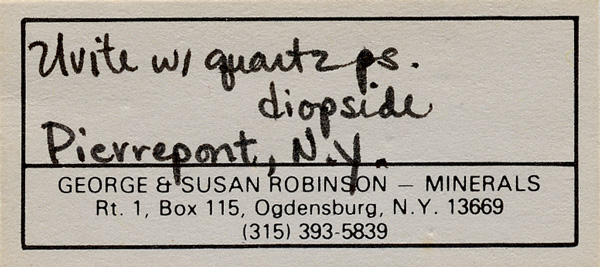 Uvite w/ quartz ps.
diopside
Pierrepont, N.Y.
GEORGE & SUSAN ROBINSON — MINERALS
Rt. 1, Box 115, Ogdensburg, N.Y. 13669
(315) 393-5839